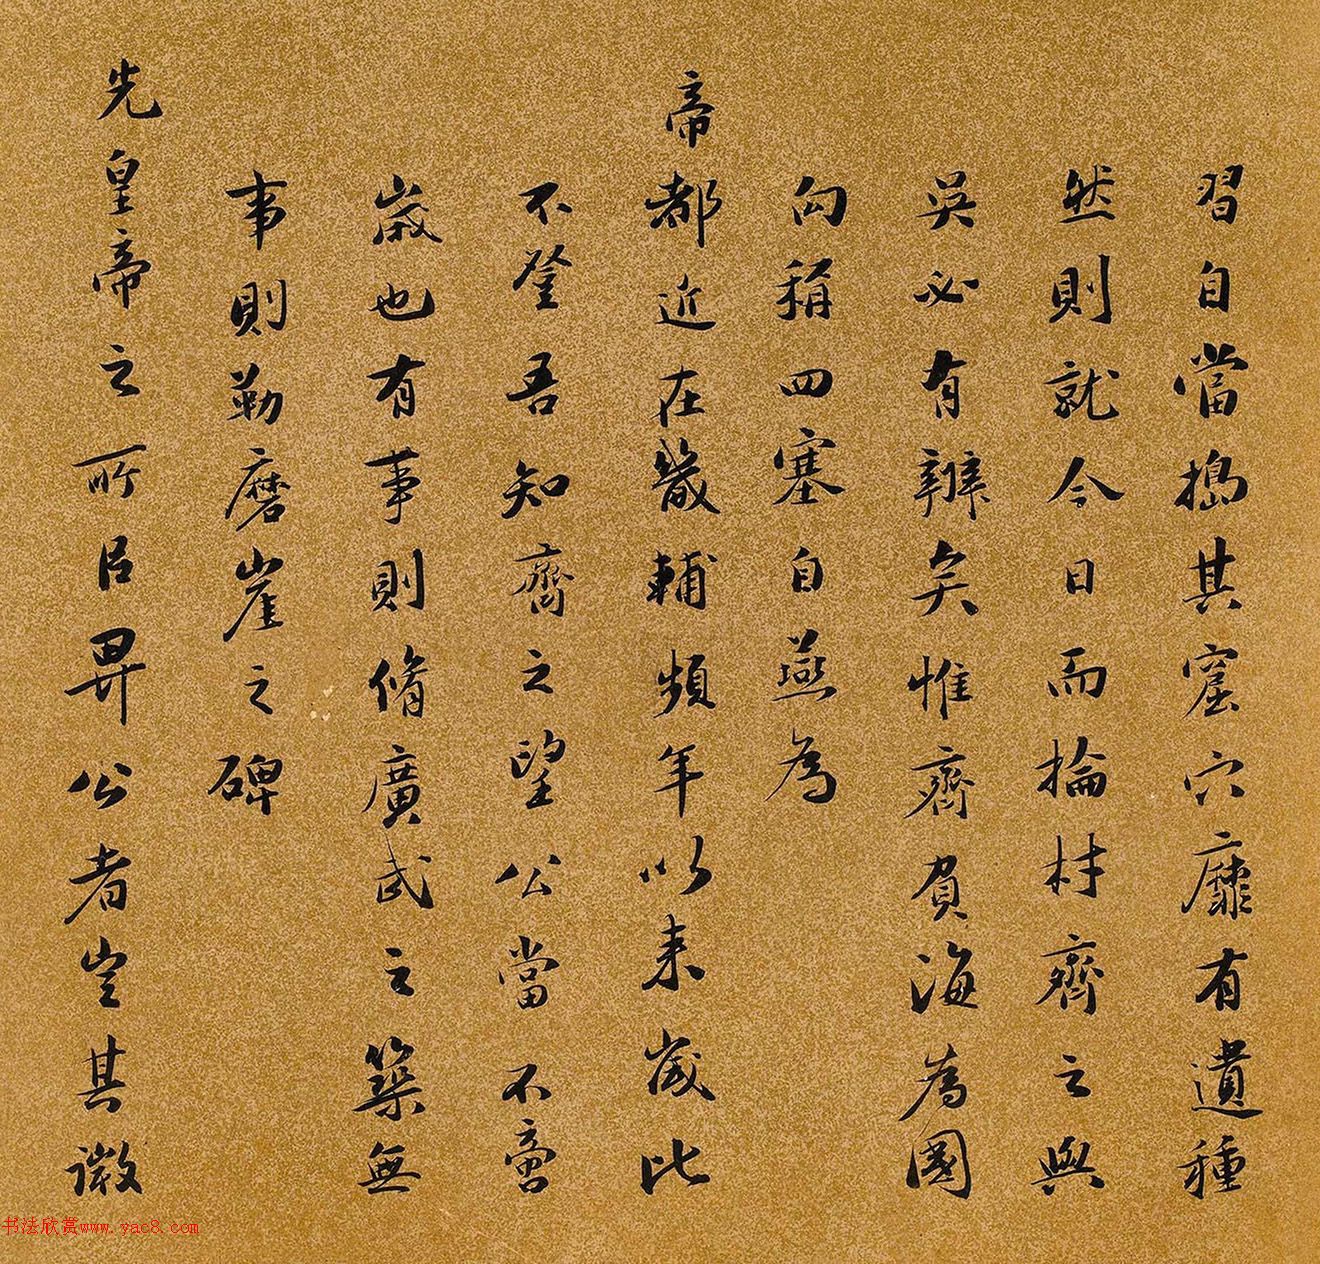 習自當搗其窟穴靡有遺種
然則就今日而掄材齊之與
吳必有辦矣惟齊負海為國
向稱四塞自燕為
帝都近在畿輔頻年以來歲比
不登吾知齊之望公當不啻
歲也有事則脩廣武之築無
事則勒磨崖之碑
先皇帝之所以畀公者豈其微
书法欣赏www.yac8.com